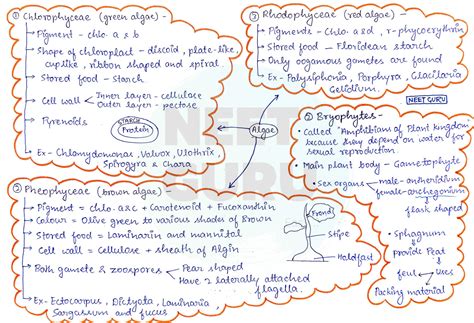 ① Chlorophyceae (green algae) -
→ Pigment - chlo. a & b
→ Shape of chloroplast - discoid, plate-like,
cuplike, ribbon shaped and spiral.
→ Stored food - Starch
→ Cell wall < Inner layer - cellulose
Outer layer - pectose
→ Pyrenoids
STARCH
Protein
→ Ex - Chlamydomonas, Volvox, Ulothrix,
Spirogyra & Chara
③ Rhodophyceae (red algae) -
→ Pigments - chlo. a & d, r-phycoerythrin
→ Stored food - Floridean starch
→ Only oogamous gametes are found
→ Ex - Polysiphonia, Porphyra, Glacilaria
Gelidium.
NEET GURU
Algae
② Pheophyceae (brown algae) -
→ Pigment = chlo. a & c + Carotenoid + Fucoxanthin
→ Colour = Olive green to various shades of Brown
→ Stored food = Laminarin and mannital
→ Cell wall = Cellulose + sheath of Algin
→ Both gamete & zoospores → Pear shaped
→ Have 2 laterally attached
flagella.
→ Ex - Ectocarpus, Dictyota, Laminaria,
Sargassum and fucus
Frond
Stipe
Holdfast
② Bryophytes -
• Called "Amphibians of Plant kingdom"
because they depend on water for
sexual reproduction.
• Main plant body - Gametophyte
• Sex organs → male - antheridium
female - archegonium
↓
flask shaped
• Sphagnum
↓
provide Peat
fuel uses
Packing material
NEET
GURU